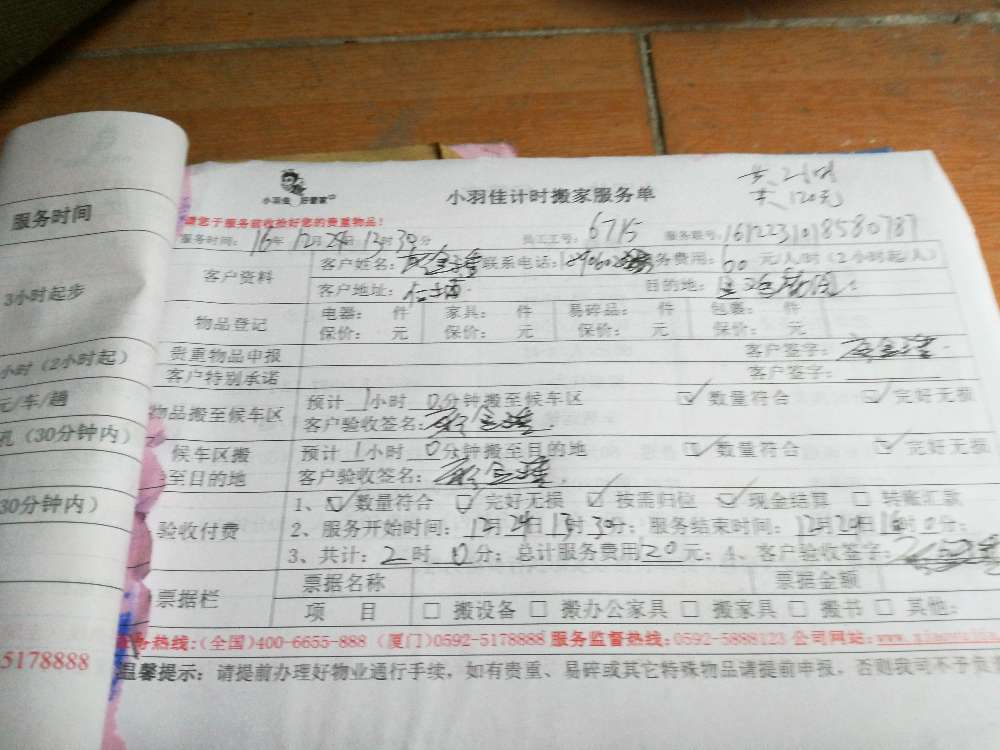 服务时间
3小时起步
小时（2小时起）
元/车/趟
孔（30分钟内）
30分钟内）
5178888
小羽佳 好管家
小羽佳计时搬家服务单
共2小时
共120元
请您于服务前收捡好您的贵重物品！
服务时间：16年12月24日13时30分 员工工号：6715 服务联号：1612231018580787
客户资料 客户姓名： 联系电话： 服务费用：60元/人/时（2小时起/人）
客户地址： 目的地：
物品登记 电器： 件 家具： 件 易碎品： 件 包裹： 件
保价： 元 保价： 元 保价： 元 保价： 元
贵重物品申报 客户签字：
客户特别承诺 客户签字：
物品搬至候车区 预计1小时0分钟搬至候车区 ☑数量符合 ☑完好无损
客户验收签名：
候车区搬至目的地 预计1小时0分钟搬至目的地 ☑数量符合 ☑完好无损
客户验收签名：
验收付费 1、☑数量符合 ☑完好无损 ☑按需归位 ☑现金结算 □转账汇款
2、服务开始时间：12月24日13时30分；服务结束时间：12月20日16时0分；
3、共计：2时0分；总计服务费用120元；4、客户验收签字：
票据栏 票据名称 票据金额
项 目 □搬设备 □搬办公家具 □搬家具 □搬书 □其他：
服务热线：（全国）400-6655-888（厦门）0592-5178888 服务监督热线：0592-5888123 公司网站：www.
温馨提示：请提前办理好物业通行手续，如有贵重、易碎或其它特殊物品请提前申报，否则我司不予负